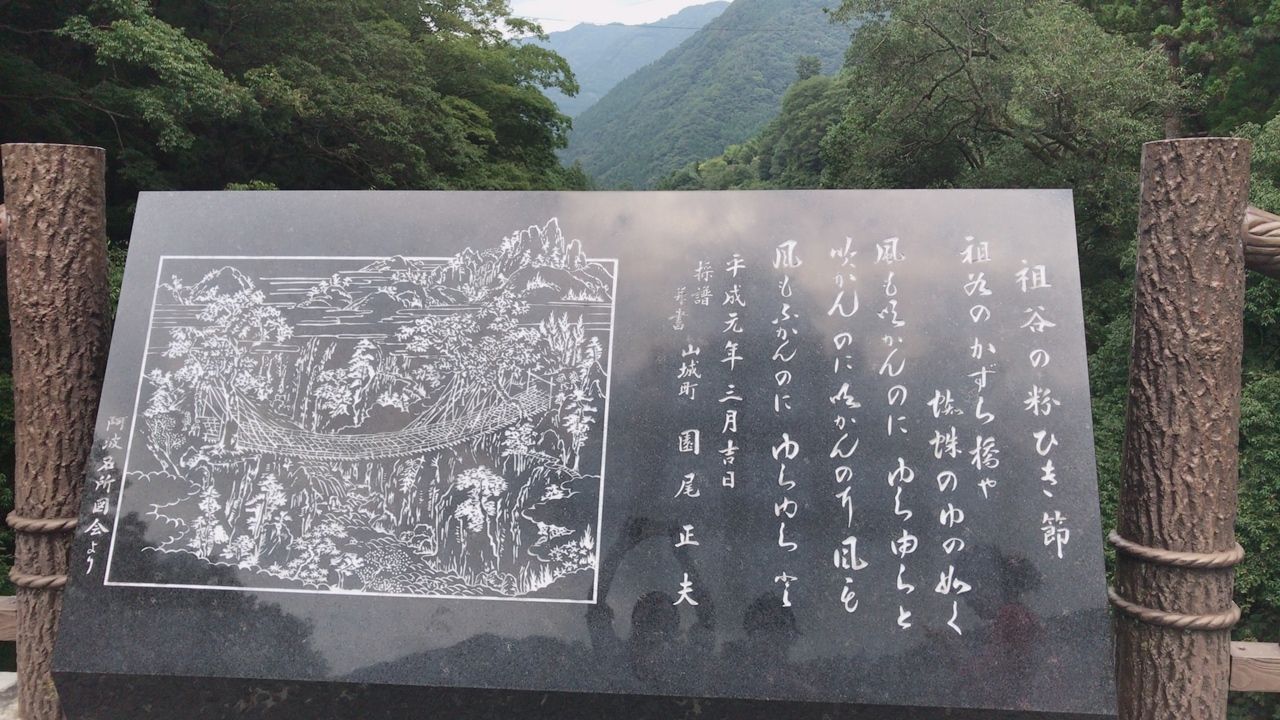 祖谷の粉ひき節
祖谷のかずら橋や
蜘蛛のゆの如く
風も吹かんのに ゆらゆらと
吹かんのに吹かんの 風も
風もふかんのに ゆらゆら
平成元年 三月吉日
採譜
山城町 園尾 正夫
阿波名所図会より